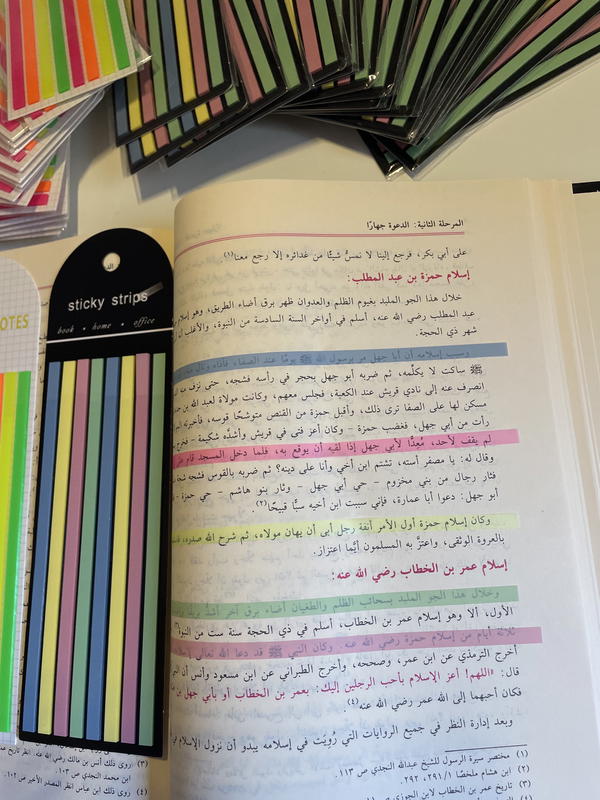 sticky strips
book • home • office
OTES
المرحلة الثانية: الدعوة جهارًا
على أبي بكر، فرجع إلينا لا نمسُّ شيئًا من غدائره إلا رجع معنا(١)
إسلام حمزة بن عبد المطلب:
خلال هذا الجو الملبد بغيوم الظلم والعدوان ظهر برق أضاء الطريق، وهو إسلام
عبد المطلب رضي الله عنه، أسلم في أواخر السنة السادسة من النبوة، والأغلب
شهر ذي الحجة.
وسبب إسلامه أن أبا جهل مر برسول الله ﷺ يومًا عند الصفا، فآذاه ونال
ﷺ ساكت لا يكلِّمه، ثم ضربه أبو جهل بحجر في رأسه فشجه، حتى نزف منه
انصرف عنه إلى نادي قريش عند الكعبة، فجلس معهم، وكانت مولاة لعبد الله بن
مسكن لها على الصفا ترى ذلك، وأقبل حمزة من القنص متوشحًا قوسه، فأخبرته
رأت من أبي جهل، فغضب حمزة - وكان أعز فتى في قريش وأشدَّه شكيمة -
لم يقف لأحد، مُعِدًّا لأبي جهل إذا لقيه أن يوقع به، فلما دخل المسجد قام
وقال له: يا مصفر أسته، تشتم ابن أخي وأنا على دينه؟ ثم ضربه بالقوس فشجه
فثار رجال من بني مخزوم - حي أبي جهل - وثار بنو هاشم - حي حمزة -
أبو جهل: دعوا أبا عمارة، فإني سببت ابن أخيه سبًّا قبيحًا(٢)
وكان إسلام حمزة أول الأمر أنفة رجل أبى أن يهان مولاه، ثم شرح الله صدره،
بالعروة الوثقى، واعتزَّ به المسلمون أيَّما اعتزاز.
إسلام عمر بن الخطاب رضي الله عنه:
وخلال هذا الجو الملبد بسحائب الظلم والطغيان أضاء برق آخر أشدُّ بريقًا
الأول، ألا وهو إسلام عمر بن الخطاب، أسلم في ذي الحجة سنة ست من النبوة
ثلاثة أيام من إسلام حمزة رضي الله عنه. وكان النبي ﷺ قد دعا الله تعالى
أخرج الترمذي عن ابن عمر، وصححه، وأخرج الطبراني عن ابن مسعود وأنس أن
قال: «اللهم! أعز الإسلام بأحب الرجلين إليك: بعمر بن الخطاب أو بأبي جهل بن
فكان أحبهما إلى الله عمر رضي الله عنه(٤).
وبعد إدارة النظر في جميع الروايات التي رُوِيَت في إسلامه يبدو أن نزول الإسلام
(١) مختصر سيرة الرسول للشيخ عبدالله النجدي ص ١١٣.
(٢) ابن هشام ملخصًا ٢٩١/١، ٢٩٢.
(٣) تاريخ عمر بن الخطاب لابن الجوزي ص
(٣) روى ذلك أنس بن مالك رضي الله عنه. انظر تاريخ
ابن محمد النجدي ص ١٠٣.
(٤) روى ذلك ابن عباس انظر المصدر الأخير ص ١٠٢.